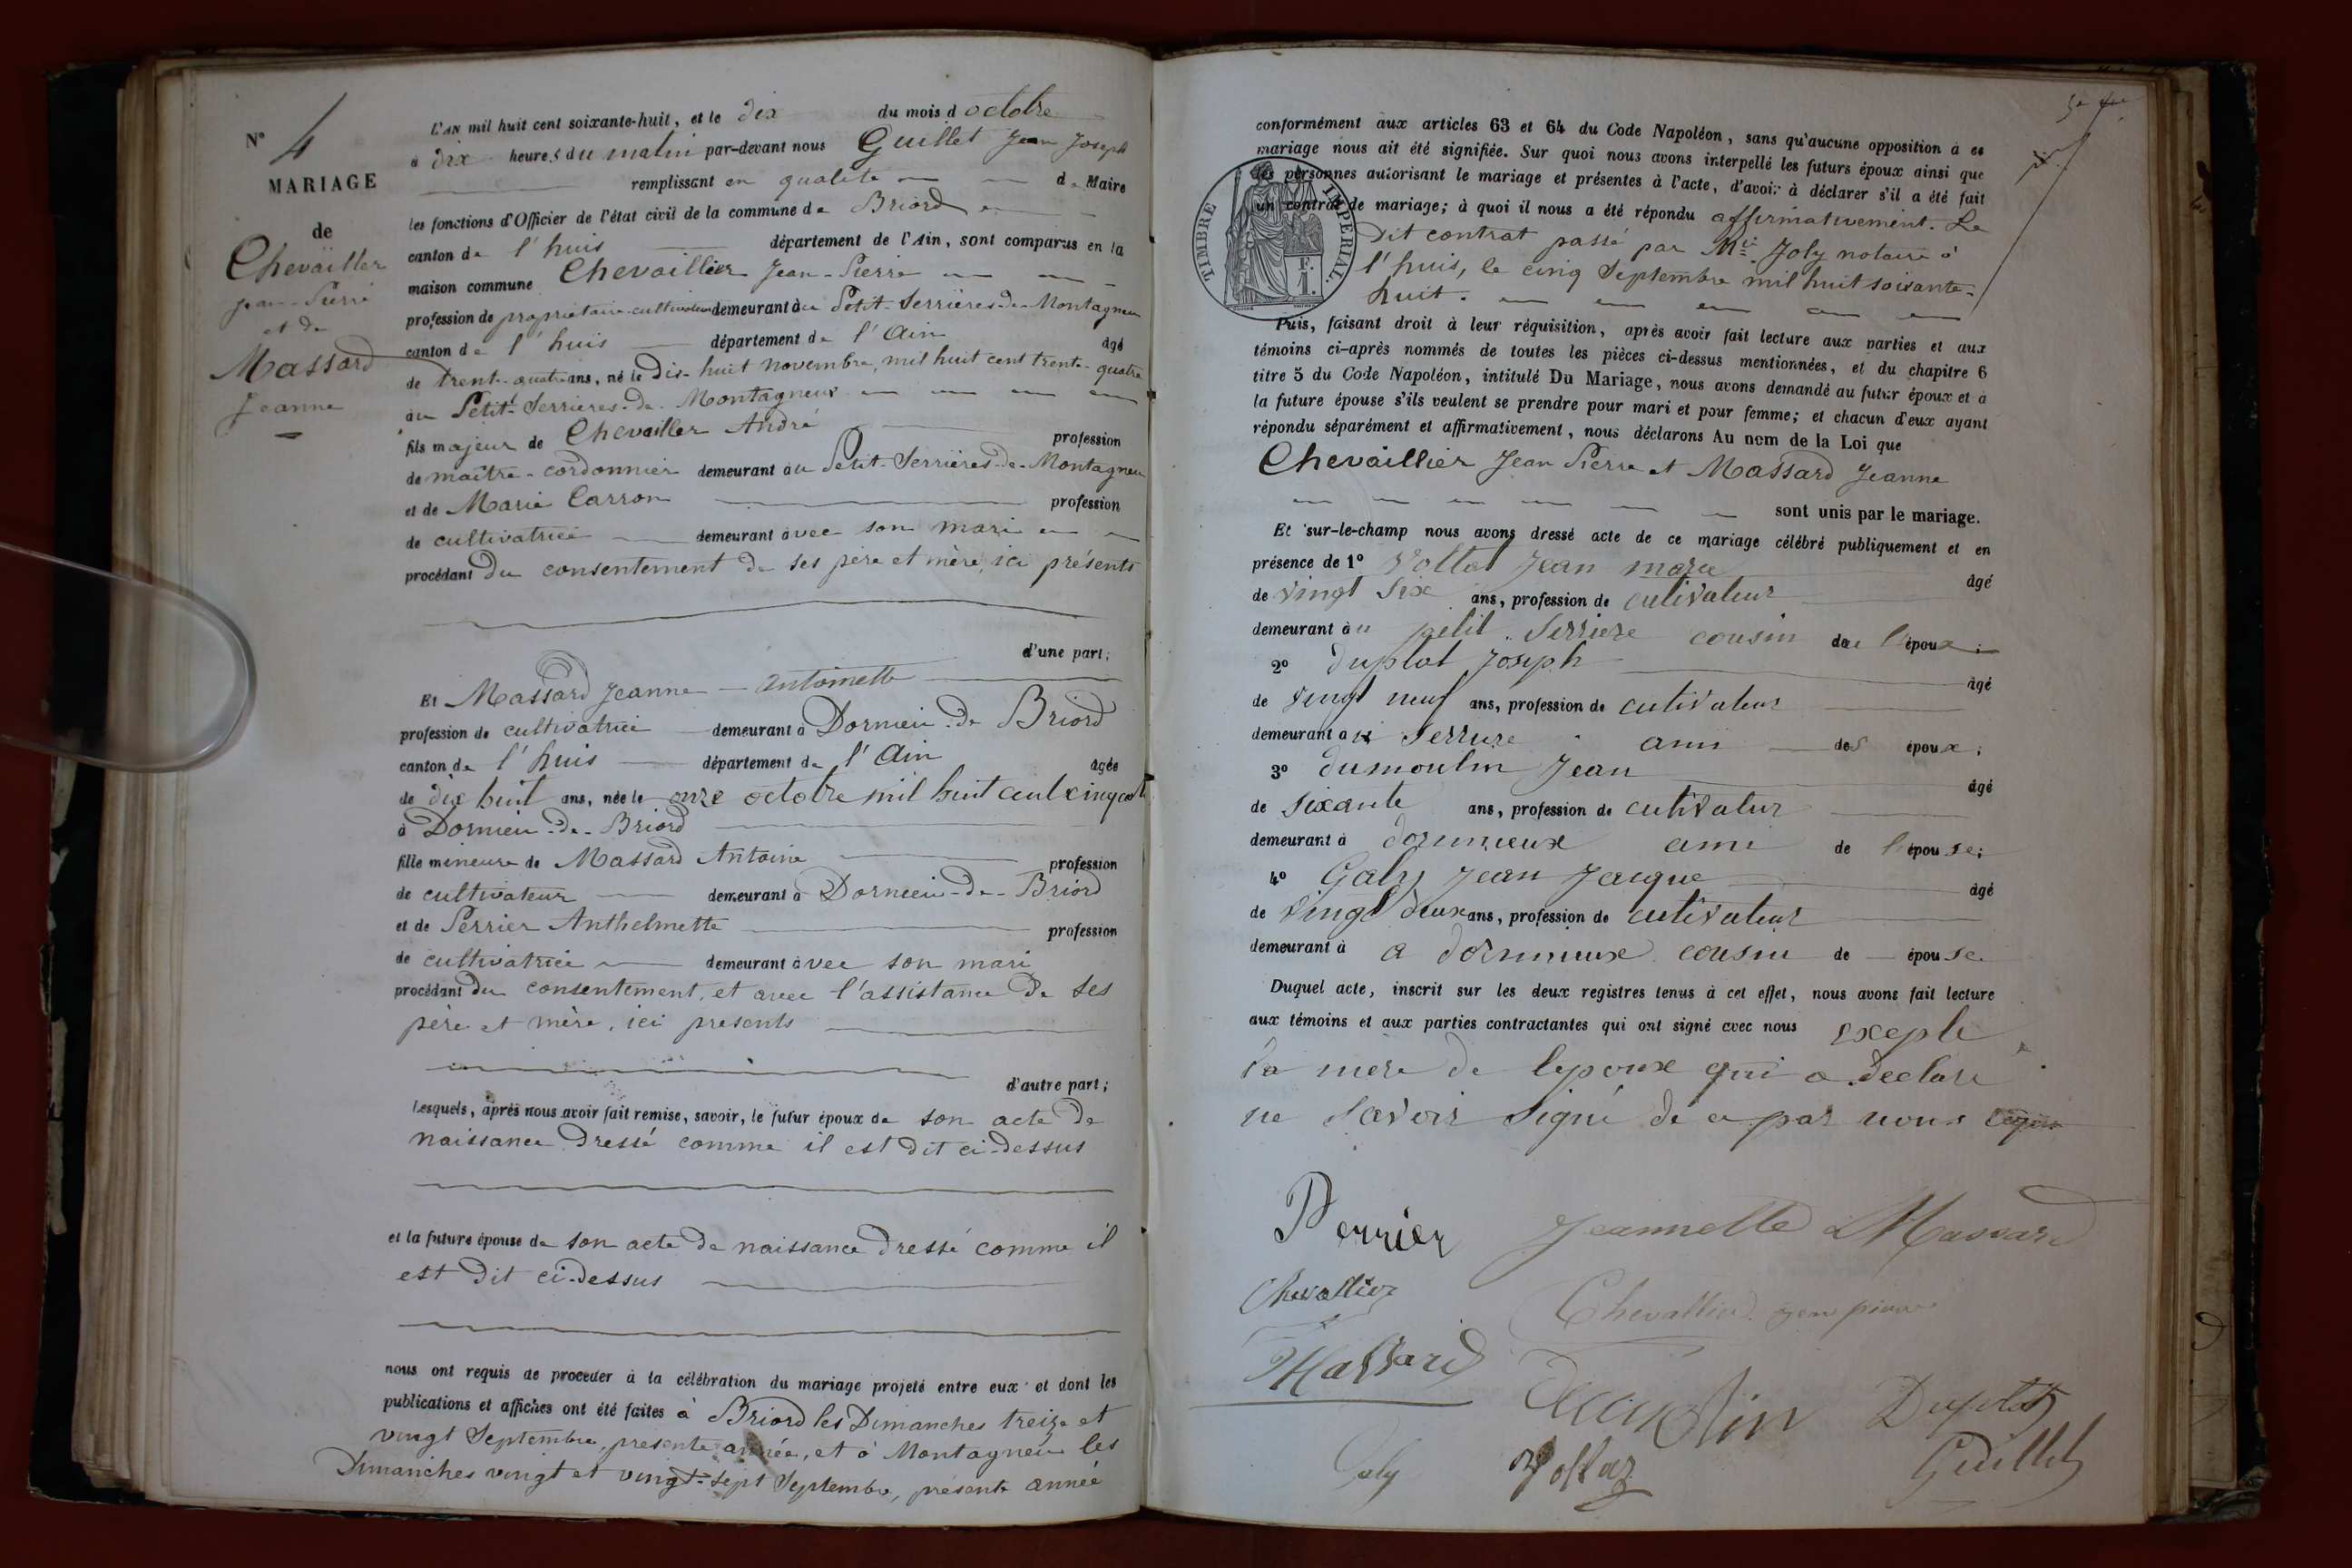 N° 4
MARIAGE
de
Chevaillier
Jean-Pierre
et de
Massard
Jeanne
L'AN mil huit cent soixante-huit, et le dix du mois d octobre
à dix heures du matin par-devant nous Guillet Jean Joseph
remplissant en qualité de Maire
les fonctions d'Officier de l'état civil de la commune de Briord
canton de l'huis département de l'Ain, sont comparus en la
maison commune Chevaillier Jean-Pierre
profession de propriétaire-cultivateur demeurant au Petit-Serrières-de-Montagneu
canton de l'huis département de l'Ain âgé
de trente-quatre ans, né le Dix-huit novembre, mil huit cent trente-quatre
au Petit-Serrières-de-Montagneux
fils majeur de Chevaillier André profession
de maître-cordonnier demeurant au Petit-Serrières-de-Montagneu
et de Marie Carron profession
de cultivatrice demeurant avec son mari
procédant du consentement de ses père et mère, ici présents
d'une part;
Et Massard Jeanne-Antoinette
profession de cultivatrice demeurant à Dornieu-de Briord
canton de l'huis département de l'Ain âgée
de dix huit ans, née le onze octobre mil huit cent cinquante
à Dornieu-de-Briord
fille mineure de Massard Antoine profession
de cultivateur demeurant à Dornieu-de-Briord
et de Perrier Anthelmette profession
de cultivatrice demeurant avec son mari
procédant du consentement, et avec l'assistance de ses
père et mère, ici présents
d'autre part;
Lesquels, après nous avoir fait remise, savoir, le futur époux de son acte de
naissance dressé comme il est dit ci-dessus
et la future épouse de son acte de naissance dressé comme il
est dit ci-dessus
nous ont requis de procéder à la célébration du mariage projeté entre eux et dont les
publications et affiches ont été faites à Briord les Dimanches treize et
vingt Septembre, présente année, et à Montagneu les
Dimanches vingt et vingt-sept Septembre, présente année
conformément aux articles 63 et 64 du Code Napoléon, sans qu'aucune opposition à ce
mariage nous ait été signifiée. Sur quoi nous avons interpellé les futurs époux ainsi que
les personnes autorisant le mariage et présentes à l'acte, d'avoir à déclarer s'il a été fait
un contrat de mariage; à quoi il nous a été répondu affirmativement. Le
TIMBRE IMPÉRIAL.
F.
1.
Dit contrat passé par Me Joly notaire à
l'huis, le cinq Septembre mil huit soixante-
huit.
Puis, faisant droit à leur réquisition, après avoir fait lecture aux parties et aux
témoins ci-après nommés de toutes les pièces ci-dessus mentionnées, et du chapitre 6
titre 5 du Code Napoléon, intitulé Du Mariage, nous avons demandé au futur époux et à
la future épouse s'ils veulent se prendre pour mari et pour femme; et chacun d'eux ayant
répondu séparément et affirmativement, nous déclarons Au nom de la Loi que
Chevaillier Jean Pierre et Massard Jeanne
sont unis par le mariage.
Et sur-le-champ nous avons dressé acte de ce mariage célébré publiquement et en
présence de 1° Jean marie âgé
de vingt six ans, profession de cultivateur
demeurant au petit Serriere cousin de l'époux;
2° duplat Joseph âgé
de vingt neuf ans, profession de cutivateur
demeurant a ami des époux;
3° dumoulin Jean âgé
de sixante ans, profession de cutivatur
demeurant à dornieux ami de l'épouse;
4° Galy Jean Jacque âgé
de vingt deux ans, profession de cutivateur
demeurant à a cousin de épouse
Duquel acte, inscrit sur les deux registres tenus à cet effet, nous avons fait lecture
aux témoins et aux parties contractantes qui ont signé avec nous exepté
la mère de lepoux qui a declare
ne savoir signé de ce par nous
Perrier Jeannette Massard
Chevallier Chevallier jean pierre
Massard Dumolin Duplat
Galy Vollaz Guillet